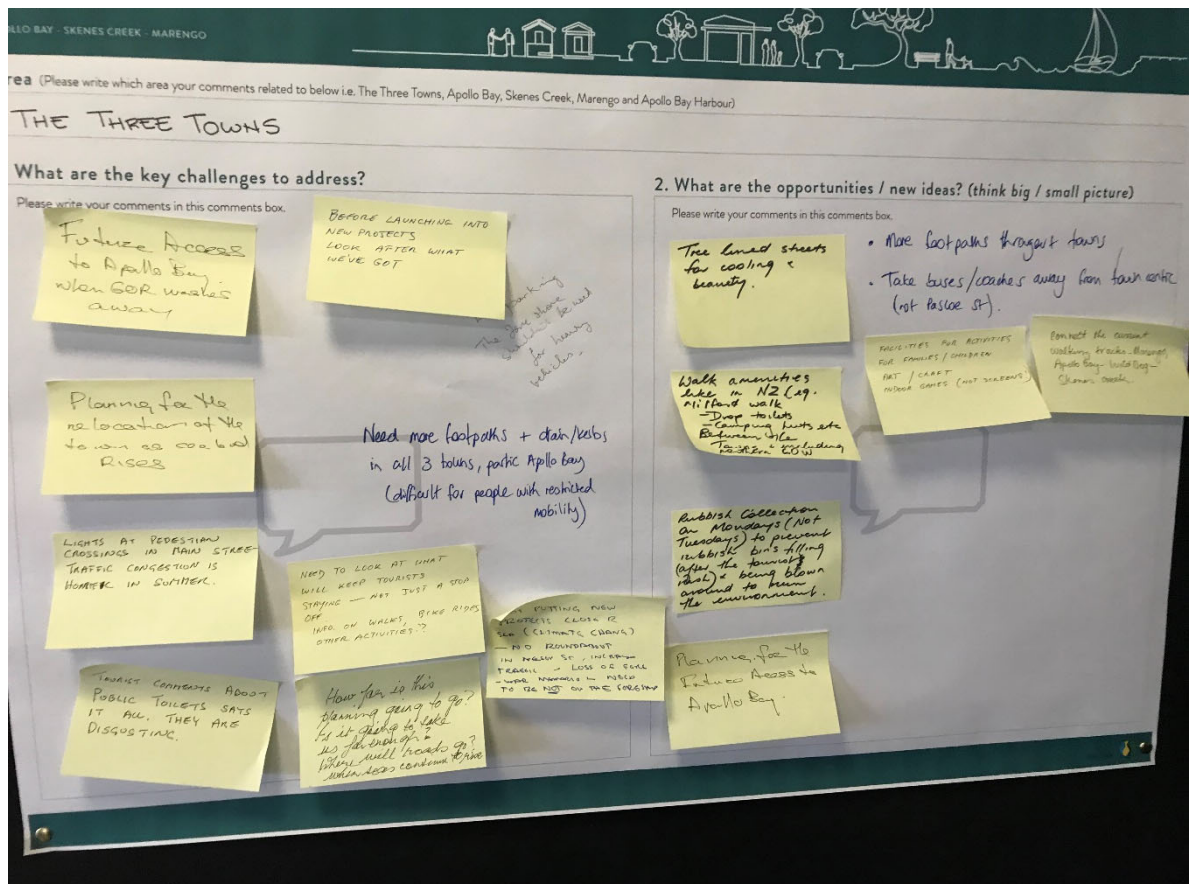 LLO BAY - SKENES CREEK - MARENGO
rea (Please write which area your comments related to below i.e. The Three Towns, Apollo Bay, Skenes Creek, Marengo and Apollo Bay Harbour)
THE THREE TOWNS
What are the key challenges to address?
Please write your comments in this comments box.
Future Access
to Apollo Bay
when GOR washes
away
BEFORE LAUNCHING INTO
NEW PROJECTS
LOOK AFTER WHAT
WE'VE GOT
parking
The fore shore
shouldn't be used
for heavy
vehicles.
Planning for the
relocation of the
town as sea level
RISES
Need more footpaths + drain/kerbs
in all 3 towns, partic Apollo Bay
(difficult for people with restricted
mobility)
LIGHTS AT PEDESTIAN
CROSSINGS IN MAIN STREET
TRAFFIC CONGESTION IS
IN SUMMER.
NEED TO LOOK AT WHAT
WILL KEEP TOURISTS
STAYING — NOT JUST A STOP
OFF
INFO ON WALKS, BIKE RIDES
OTHER ACTIVITIES??
PUTTING NEW
PROJECTS CLOSER
SEA (CLIMATE CHANG)
- NO ROUNDABOUT
IN ST, INCREAS
TRAFFIC + LOSS OF
- WAR MEMORIAL NEED
TO BE NOT ON THE FORESHO
TOURIST COMMENTS ABOUT
PUBLIC TOILETS SAYS
IT ALL. THEY ARE
DISGUSTING.
How far is this
planning going to go?
Is it going to take
us far enough?
Where will roads go?
when seas continue to rise
2. What are the opportunities / new ideas? (think big / small picture)
Please write your comments in this comments box.
Tree lined streets
for cooling &
beauty.
• More footpaths throughout towns
• Take buses/coaches away from town centre
(not Pascoe St).
FACILITIES FOR ACTIVITIES
FOR FAMILIES / CHILDREN
ART / CRAFT
INDOOR GAMES (NOT SCREENS)
Connect the current
walking tracks - Marengo,
Apollo Bay - Wild Dog -
Skenes Creek.
Walk amenities
like in NZ (eg.
Milford walk
- Drop toilets
- Camping huts etc
Between the
Towns & including
GOW
Rubbish Collection
on Mondays (Not
Tuesdays) to prevent
rubbish bins filling
(after the tourist
rush) & being blown
around to
the environment.
Planning for the
Future Access to
Apollo Bay